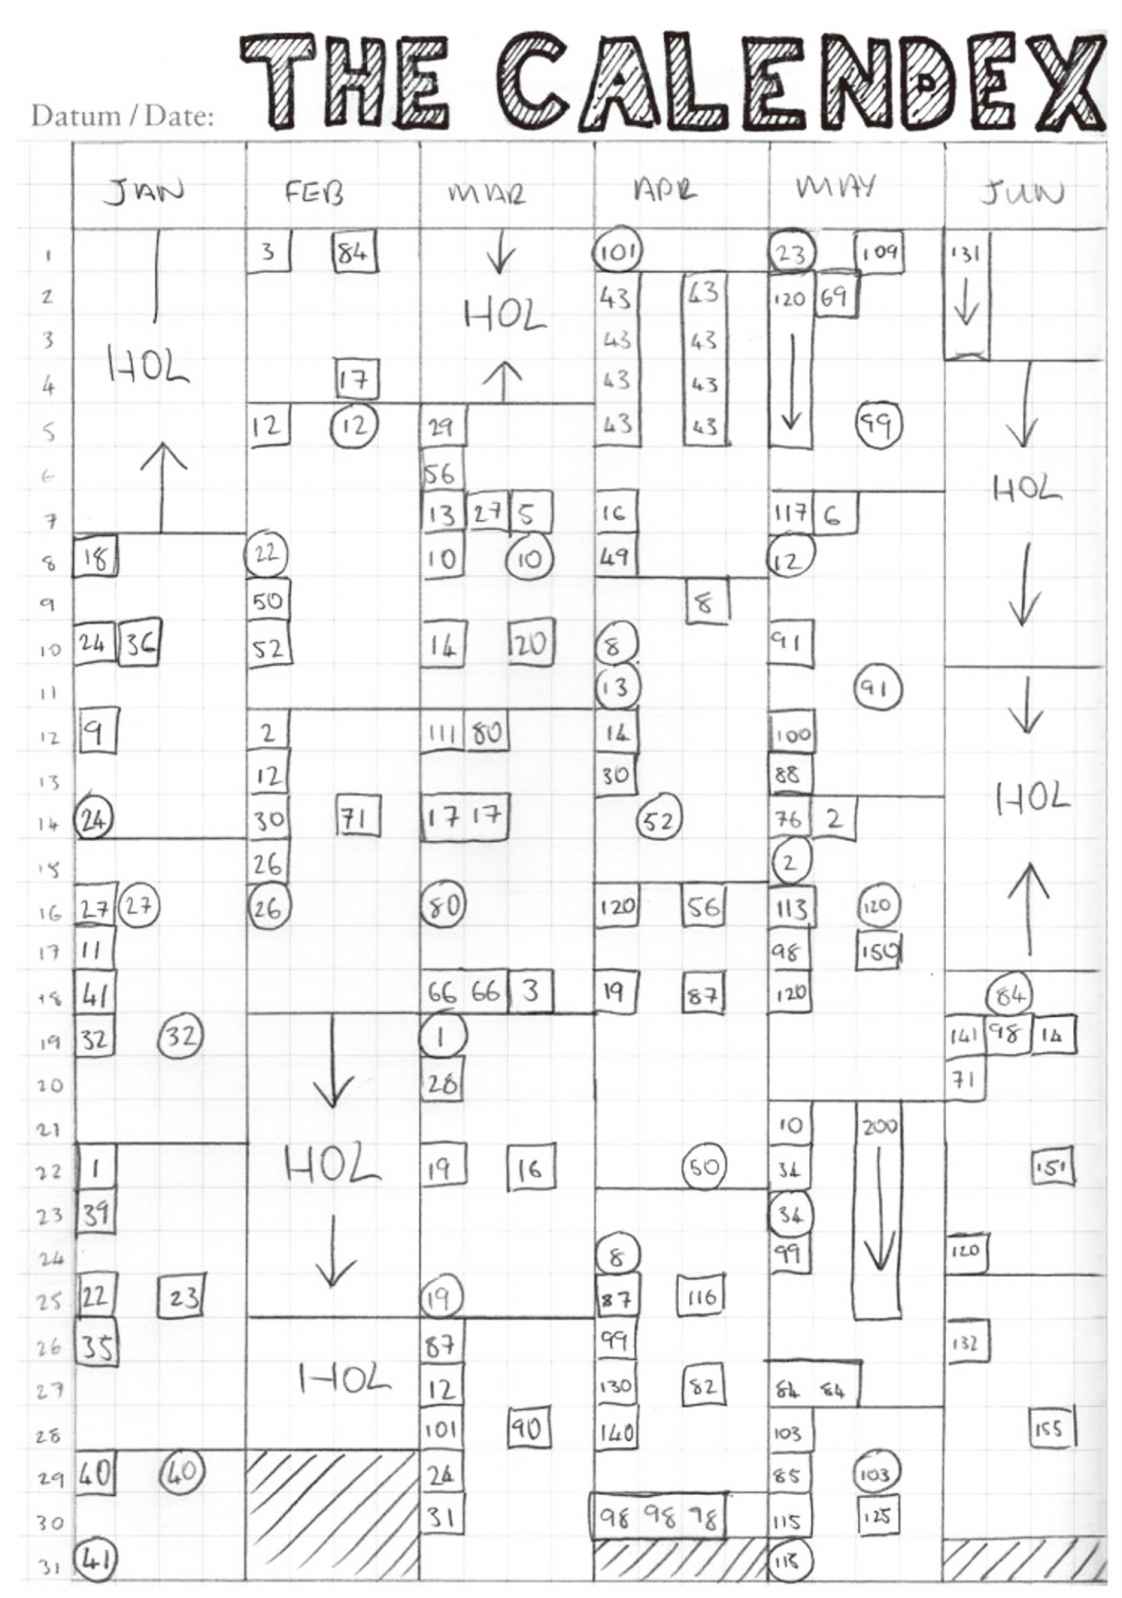 THE CALENDEX
Datum / Date:
JAN FEB MAR APR MAY JUN
1 3 84 101 23 109 131
2 HOL 43 43 120 69
3 HOL 43 43
4 17 43 43
5 12 12 29 43 43 99
6 56 HOL
7 13 27 5 16 117 6
8 18 22 10 10 49 12
9 50 8
10 24 36 52 14 20 8 91
11 13 91
12 9 2 111 80 14 100
13 12 30 88 HOL
14 24 30 71 17 17 52 76 2
15 26 2
16 27 27 26 80 120 56 113 120
17 11 98 150
18 41 66 66 3 19 87 120 84
19 32 32 1 141 98 14
20 28 71
21 10 200
22 1 HOL 19 16 50 34 151
23 39 34
24 8 99 120
25 22 23 19 87 116
26 35 87 99 132
27 HOL 12 130 82 84 84
28 101 90 140 103 155
29 40 40 24 85 103
30 31 98 98 98 115 125
31 41 115